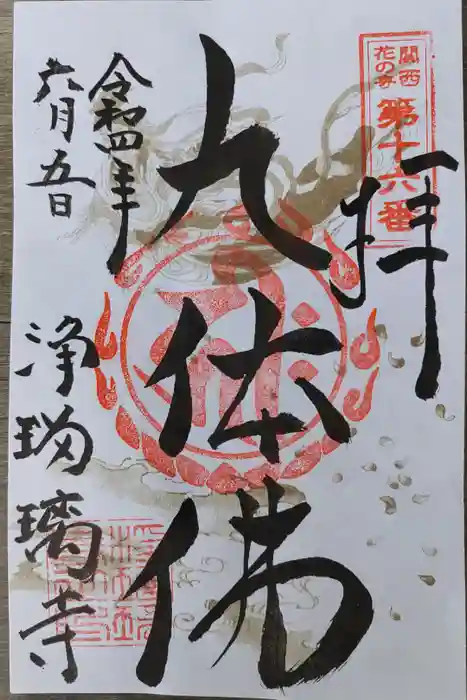 関西
花の寺
第十六番
拝
九体佛
令和四年
六月五日
浄瑠璃寺